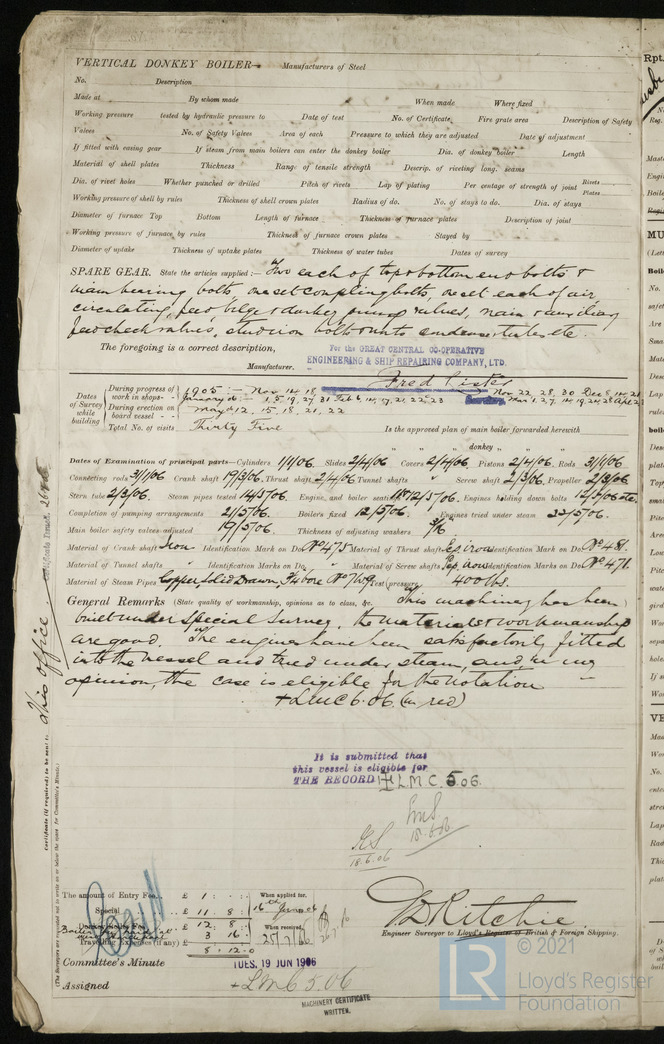 VERTICAL DONKEY BOILER— Manufacturers of Steel
No. Description
Made at By whom made When made Where fixed
Working pressure tested by hydraulic pressure to Date of test No. of Certificate Fire grate area Description of Safety
Valves No. of Safety Valves Area of each Pressure to which they are adjusted Date of adjustment
If fitted with easing gear If steam from main boilers can enter the donkey boiler Dia. of donkey boiler Length
Material of shell plates Thickness Range of tensile strength Descrip. of riveting long. seams
Dia. of rivet holes Whether punched or drilled Pitch of rivets Lap of plating Per centage of strength of joint Rivets Plates
Working pressure of shell by rules Thickness of shell crown plates Radius of do. No. of stays to do. Dia. of stays
Diameter of furnace Top Bottom Length of furnace Thickness of furnace plates Description of joint
Working pressure of furnace by rules Thickness of furnace crown plates Stayed by
Diameter of uptake Thickness of uptake plates Thickness of water tubes Dates of survey
SPARE GEAR. State the articles supplied:— Two each of top & bottom end bolts &
main bearing bolts, one set coupling bolts, one set each of air,
circulating, feed, bilge & donkey pump valves, main & auxiliary
feed check valves, studs iron bolts & nuts
The foregoing is a correct description,
For the GREAT CENTRAL CO-OPERATIVE
ENGINEERING & SHIP REPAIRING COMPANY, LTD.
Manufacturer.
Dates of Survey while building
During progress of work in shops - - 1905:- Nov 14, 18, Nov 22, 28, 30 Dec 8, 14, 21
January 06:- 1, 5, 19, 27, 31 Feb 6, 14, 17, 21, 22, 23
During erection on board vessel - - May 12, 15, 18, 21, 22
Total No. of visits Thirty Five Is the approved plan of main boiler forwarded herewith
" " " donkey " " "
Dates of Examination of principal parts—Cylinders 1/1/06. Slides 2/4/06 Covers 2/4/06 Pistons 2/4/06. Rods 31/1/06
Connecting rods 31/1/06 Crank shaft 19/3/06. Thrust shaft 2/4/06 Tunnel shafts " Screw shaft 2/3/06. Propeller 2/3/06
Stern tube 2/3/06. Steam pipes tested 14/5/06. Engine and boiler seatings 12/5/06. Engines holding down bolts 12/5/06
Completion of pumping arrangements 21/5/06. Boilers fixed 12/5/06. Engines tried under steam 22/5/06.
Main boiler safety valves adjusted 19/5/06 Thickness of adjusting washers 3/16"
Material of Crank shaft Iron Identification Mark on Do. No 475 Material of Thrust shaft Identification Mark on Do. No 481.
Material of Tunnel shafts " Identification Marks on Do. " Material of Screw shafts Identification Marks on Do. No 471.
Material of Steam Pipes Copper, Solid Drawn, Test pressure 400 lbs.
General Remarks (State quality of workmanship, opinions as to class, &c. This machinery has been
built under Special Survey, the materials & workmanship
are good. The engines have been satisfactorily fitted
into the vessel and tried under steam, and in my
opinion, the case is eligible for the notation
+LMC 6.06. (in red)
It is submitted that
this vessel is eligible for
THE RECORD + L M C. 5.06.
18.6.06
18.6.06
The amount of Entry Fee.. £ 1 : : When applied for,
Special .. £ 11 : 8 : 16th June 06
Donkey Boiler Fee £ 12 : 8 When received,
3 : 16
Travelling Expenses (if any) £ 8 : 12 : 0
Engineer Surveyor to Lloyd's Register of British & Foreign Shipping.
Committee's Minute TUES. 19 JUN 1906
Assigned +LMC 5.06
MACHINERY CERTIFICATE
WRITTEN.
Certificate (if required) to be sent to This office.
(The Surveyors are requested not to write on or below the space for Committee's Minute.)
© 2021
LR
Lloyd's Register
Foundation
Rpt.